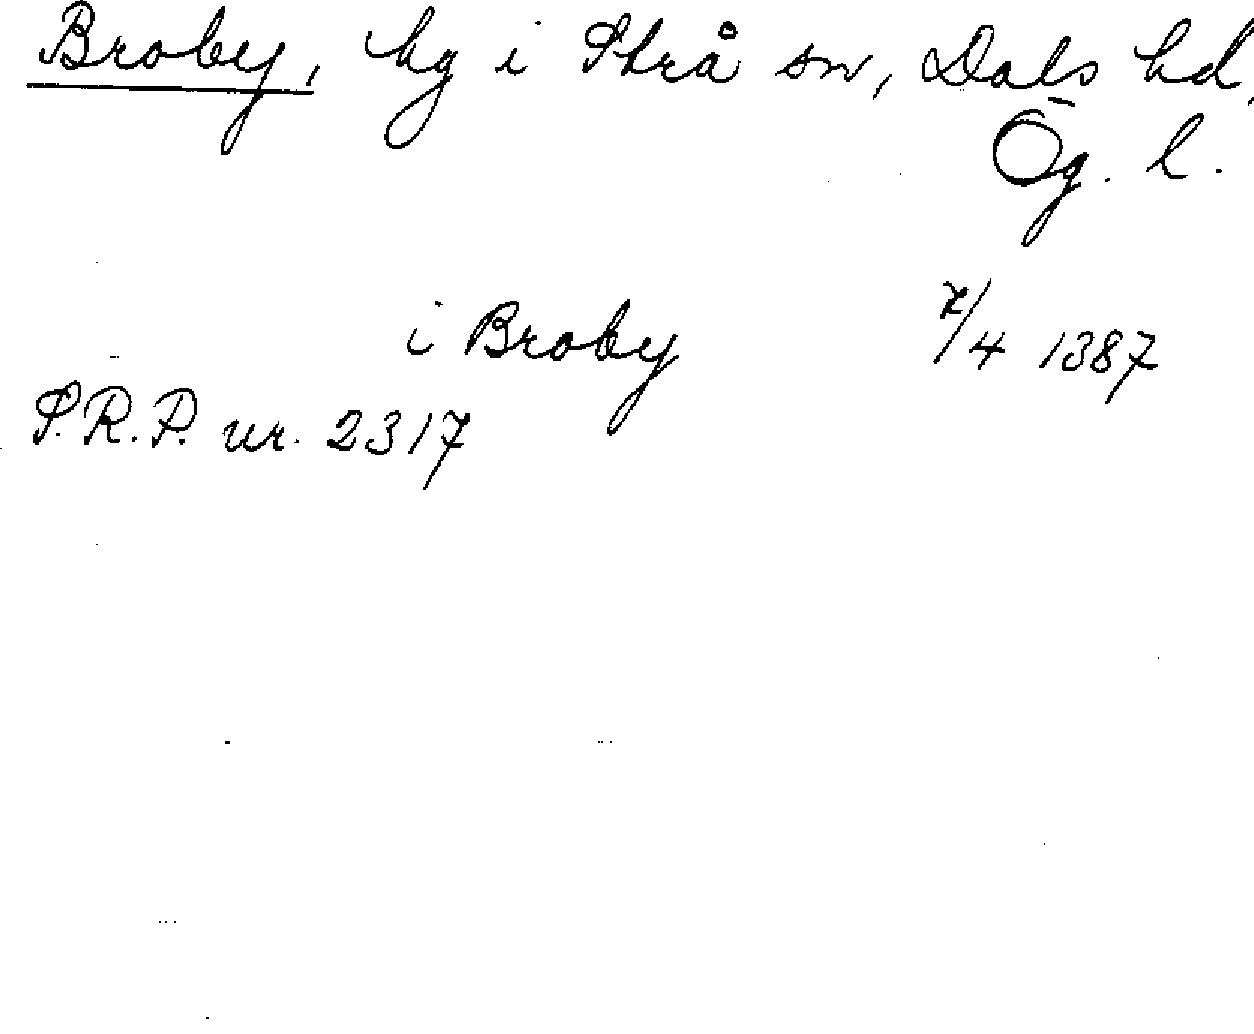 Broby, by i Strå sn, Dals hd,
Ög. l.
i Broby 7/4 1387
S.R.P. nr. 2317